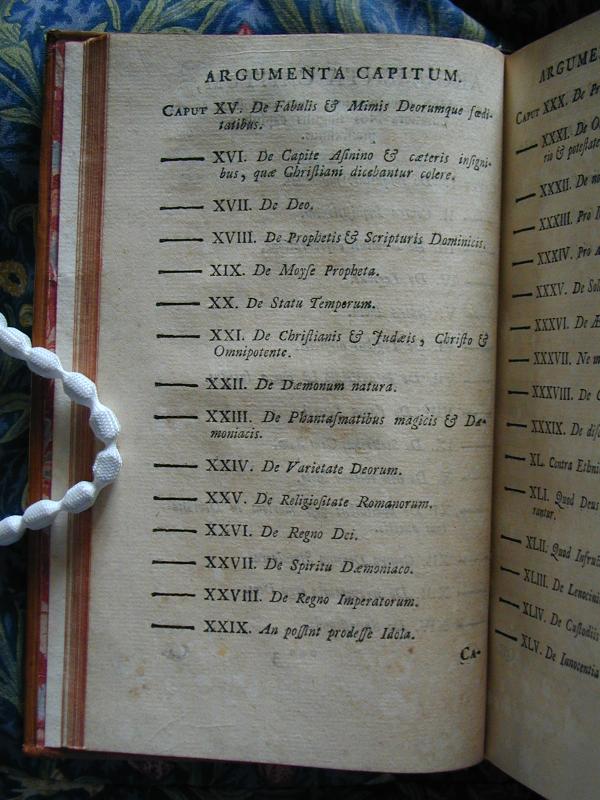 ARGUMENTA CAPITUM.
CAPUT XV. De Fabulis & Mimis Deorumque fœdi-
tatibus.
—— XVI. De Capite Aſinino & cæteris inſigni-
bus, quæ Chriſtiani dicebantur colere.
—— XVII. De Deo.
—— XVIII. De Prophetis & Scripturis Dominicis.
—— XIX. De Moyſe Propheta.
—— XX. De Statu Temporum.
—— XXI. De Chriſtianis & Judæis, Chriſto &
Omnipotente.
—— XXII. De Dæmonum natura.
—— XXIII. De Phantaſmatibus magicis & Dæ-
moniacis.
—— XXIV. De Varietate Deorum.
—— XXV. De Religioſitate Romanorum.
—— XXVI. De Regno Dei.
—— XXVII. De Spiritu Dæmoniaco.
—— XXVIII. De Regno Imperatorum.
—— XXIX. An poſſint prodeſſe Idola.
CA-
ARGUME
CAPUT XXX. De Pr
—— XXXI. De O
rio & poteſtate
—— XXXII. De no
—— XXXIII. Pro I
—— XXXIV. Pro A
—— XXXV. De Sol
—— XXXVI. De Æ
—— XXXVII. Ne m
—— XXXVIII. De C
—— XXXIX. De diſc
—— XL. Contra Ethni
—— XLI. Quod Deus
rantur.
—— XLII. Quod Infru
—— XLIII. De Lenocini
—— XLIV. De Cuſtodiis
—— XLV. De Innocentia